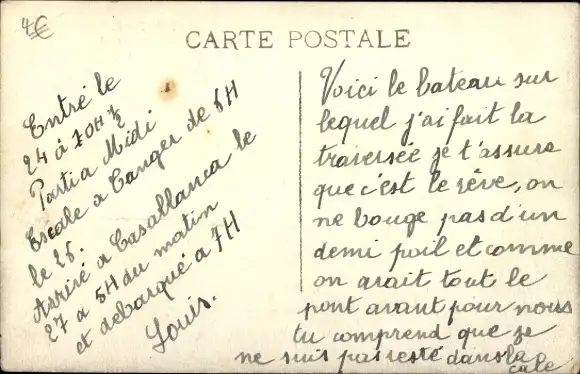 4€
CARTE POSTALE
Entré le
24 à 10H ½
Parti a Midi
Escale a Tanger de 6H
le 26.
Arrivé a Casallanca le
27 a 5H du matin
et debarqué a 7H
Louis.
Voici le bateau sur
lequel j'ai fait la
traversée je t'assure
que c'est le rêve, on
ne bouge pas d'un
demi poil et comme
on avait tout le
pont avant pour nous
tu comprend que je
ne suis pas resté dans la
cale